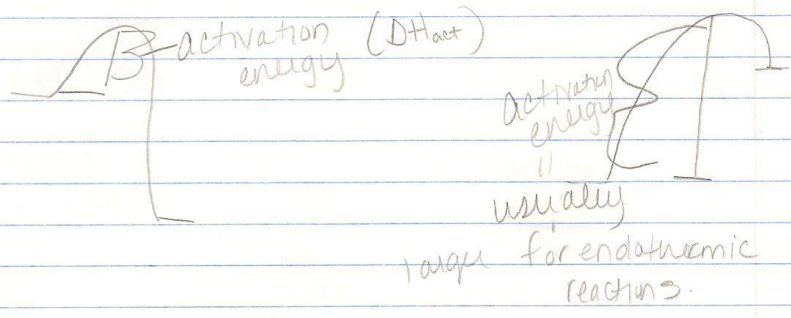 activation (DHact)
energy
activation
energy
usually
large for endothermic
reactions.